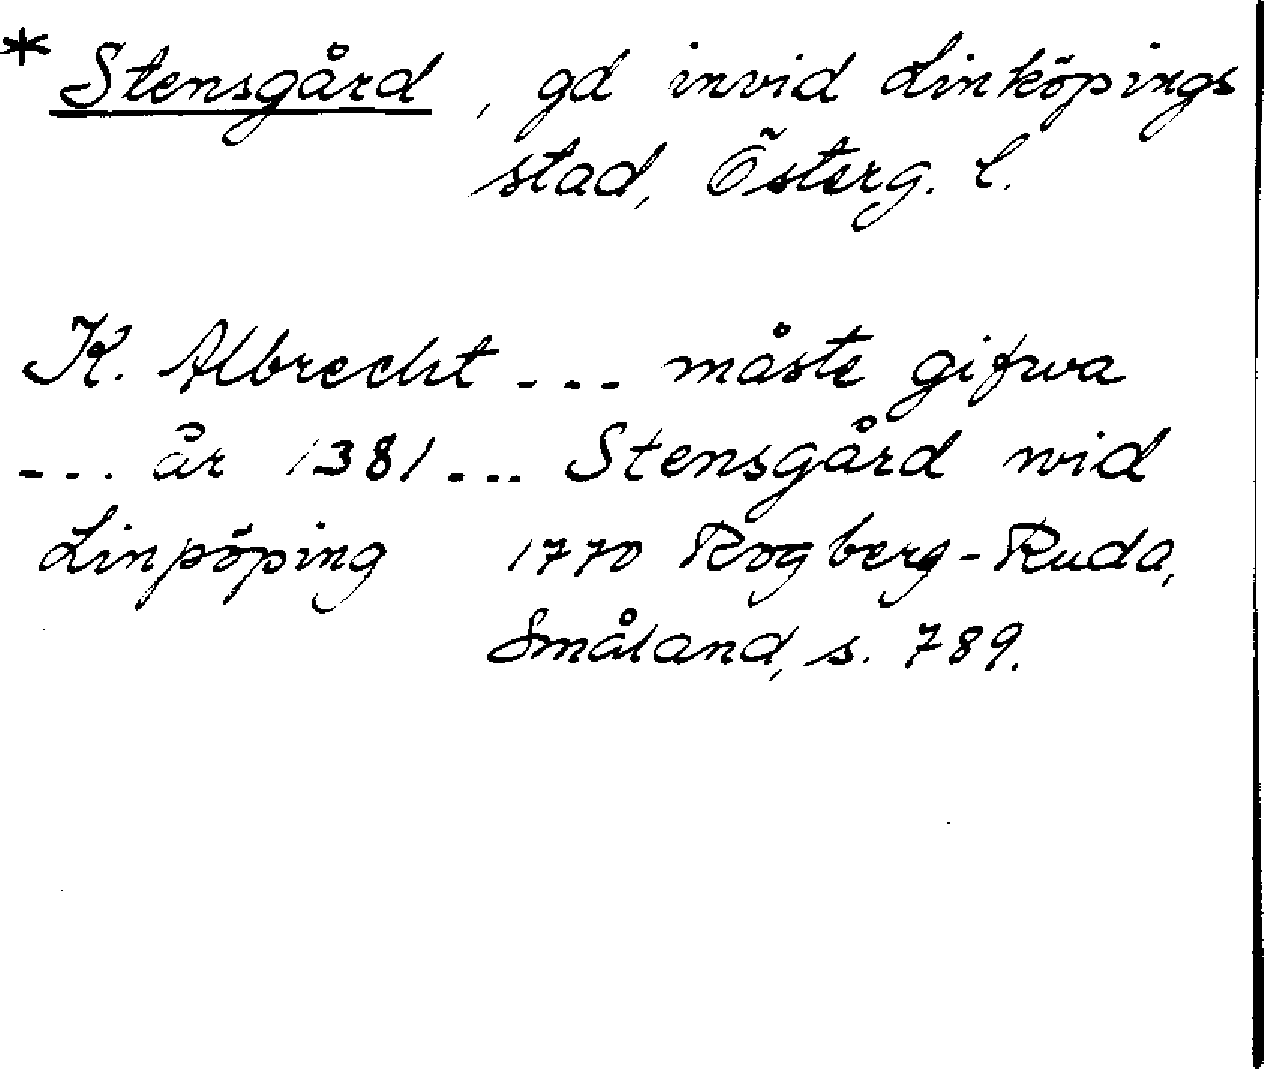 * Stensgård, gd invid Linköpings
stad, Österg. l.
K. Albrecht --- måste gifwa
--- år 1381 --- Stensgård wid
Linpöping 1770 Rogberg-Ruda,
Småland, s. 789.